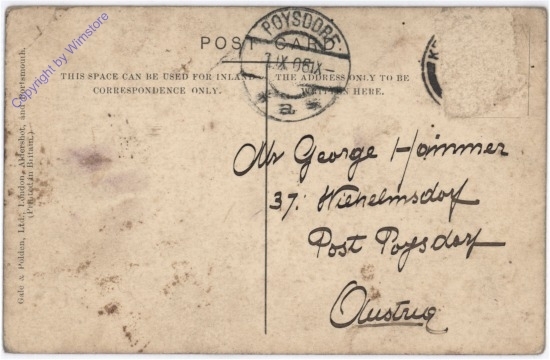 POST CARD.
POYSDORF
7.IX 06 IX-
* a *
THIS SPACE CAN BE USED FOR INLAND
CORRESPONDENCE ONLY.
THE ADDRESS ONLY TO BE
WRITTEN HERE.
Mr George Hammer
37. Wilhelmsdorf
Post Poysdorf
Austria
Gale & Polden, Ltd., London, Aldershot, and Portsmouth.
(Printed in Britain.)
Copyright by Wimstore